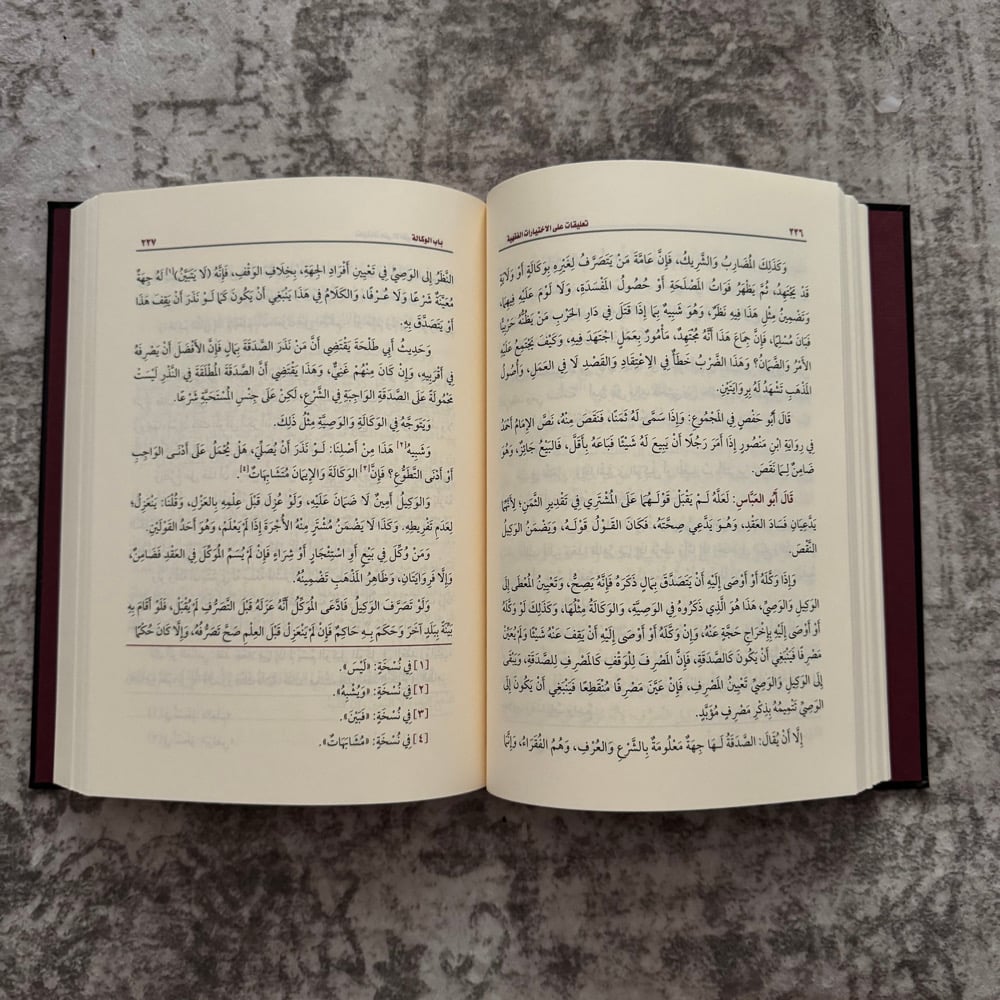 ٢٢٦
تعليقات على الاختيارات الفقهية
وَكَذَلِكَ المُضَارِبُ وَالشَّرِيكُ، فَإِنَّ عَامَّةَ مَنْ يَتَصَرَّفُ لِغَيْرِهِ بِوَكَالَةٍ أَوْ وَلَايَةٍ
قَدْ يَجْتَهِدُ، ثُمَّ يَظْهَرُ فَوَاتُ المَصْلَحَةِ أَوْ حُصُولُ المَفْسَدَةِ، وَلَا لَوْمَ عَلَيْهِ فِيهِمَا،
وَتَضْمِينُ مِثْلِ هَذَا فِيهِ نَظَرٌ، وَهُوَ شَبِيهٌ بِمَا إِذَا قَتَلَ فِي دَارِ الحَرْبِ مَنْ يَظُنُّهُ حَرْبِيًّا
فَبَانَ مُسْلِمًا، فَإِنَّ جِمَاعَ هَذَا أَنَّهُ مُجْتَهِدٌ، مَأْمُورٌ بِعَمَلٍ اجْتَهَدَ فِيهِ، وَكَيْفَ يَجْتَمِعُ عَلَيْهِ
الأَمْرُ وَالضَّمَانُ؟ وَهَذَا الضَّرْبُ خَطَأٌ فِي الِاعْتِقَادِ وَالقَصْدِ لَا فِي العَمَلِ، وَأُصُولُ
المَذْهَبِ تَشْهَدُ لَهُ بِرِوَايَتَيْنِ.
قَالَ أَبُو حَفْصٍ فِي المَجْمُوعِ: وَإِذَا سَمَّى لَهُ ثَمَنًا، فَنَقَصَ مِنْهُ، نَصَّ الإِمَامُ أَحْمَدُ
فِي رِوَايَةِ ابْنِ مَنْصُورٍ إِذَا أَمَرَ رَجُلًا أَنْ يَبِيعَ لَهُ شَيْئًا فَبَاعَهُ بِأَقَلَّ، فَالبَيْعُ جَائِزٌ، وَهُوَ
ضَامِنٌ لِمَا نَقَصَ.
قَالَ أَبُو العَبَّاسِ: لَعَلَّهُ لَمْ يَقْبَلْ قَوْلَهُمَا عَلَى المُشْتَرِي فِي تَقْدِيرِ الثَّمَنِ؛ لِأَنَّهُمَا
يَدَّعِيَانِ فَسَادَ العَقْدِ، وَهُوَ يَدَّعِي صِحَّتَهُ، فَكَانَ القَوْلُ قَوْلَهُ، وَيَضْمَنُ الوَكِيلُ
النَّقْصَ.
وَإِذَا وَكَّلَهُ أَوْ أَوْصَى إِلَيْهِ أَنْ يَتَصَدَّقَ بِمَالٍ ذَكَرَهُ فَإِنَّهُ يَصِحُّ، وَتَعْيِينُ المُعْطَى إِلَى
الوَكِيلِ وَالوَصِيِّ، هَذَا هُوَ الَّذِي ذَكَرُوهُ فِي الوَصِيَّةِ، وَالوَكَالَةُ مِثْلُهَا، وَكَذَلِكَ لَوْ وَكَّلَهُ
أَوْ أَوْصَى إِلَيْهِ بِإِخْرَاجِ حَجَّةٍ عَنْهُ، وَإِنْ وَكَّلَهُ أَوْ أَوْصَى إِلَيْهِ أَنْ يَقِفَ عَنْهُ شَيْئًا وَلَمْ يُعَيِّنْ
مَصْرِفًا فَيَنْبَغِي أَنْ يَكُونَ كَالصَّدَقَةِ، فَإِنَّ المَصْرِفَ لِلْوَقْفِ كَالمَصْرِفِ لِلصَّدَقَةِ، وَيَبْقَى
إِلَى الوَكِيلِ وَالوَصِيِّ تَعْيِينُ المَصْرِفِ، فَإِنْ عَيَّنَ مَصْرِفًا مُنْقَطِعًا فَيَنْبَغِي أَنْ يَكُونَ إِلَى
الوَصِيِّ تَتْمِيمُهُ بِذِكْرِ مَصْرِفٍ مُؤَبَّدٍ.
إِلَّا أَنْ يُقَالَ: الصَّدَقَةُ لَهَا جِهَةٌ مَعْلُومَةٌ بِالشَّرْعِ وَالعُرْفِ، وَهُمُ الفُقَرَاءُ، وَإِنَّمَا
باب الوكالة
٢٢٧
النَّظَرُ إِلَى الوَصِيِّ فِي تَعْيِينِ أَفْرَادِ الجِهَةِ، بِخِلَافِ الوَقْفِ، فَإِنَّهُ (لَا يَتَبَيَّنُ)[١] لَهُ جِهَةٌ
مُعَيَّنَةٌ شَرْعًا وَلَا عُرْفًا، وَالكَلَامُ فِي هَذَا يَنْبَغِي أَنْ يَكُونَ كَمَا لَوْ نَذَرَ أَنْ يَقِفَ هَذَا
أَوْ يَتَصَدَّقَ بِهِ.
وَحَدِيثُ أَبِي طَلْحَةَ يَقْتَضِي أَنَّ مَنْ نَذَرَ الصَّدَقَةَ بِمَالٍ فَإِنَّ الأَفْضَلَ أَنْ يَصْرِفَهُ
فِي أَقْرَبِيهِ، وَإِنْ كَانَ مِنْهُمْ غَنِيٌّ، وَهَذَا يَقْتَضِي أَنَّ الصَّدَقَةَ المُطْلَقَةَ فِي النَّذْرِ لَيْسَتْ
مَحْمُولَةً عَلَى الصَّدَقَةِ الوَاجِبَةِ فِي الشَّرْعِ، لَكِنْ عَلَى جِنْسِ المُسْتَحَبَّةِ شَرْعًا.
وَيَتَوَجَّهُ فِي الوَكَالَةِ وَالوَصِيَّةِ مِثْلُ ذَلِكَ.
وَشَبِيهُ[٢] هَذَا مِنْ أَصْلِنَا: لَوْ نَذَرَ أَنْ يُصَلِّيَ، هَلْ يُحْمَلُ عَلَى أَدْنَى الوَاجِبِ
أَوْ أَدْنَى التَّطَوُّعِ؟ فَإِنَّ[٣] الوَكَالَةَ وَالإِيمَانَ مُتَشَابِهَاتٌ[٤].
وَالوَكِيلُ أَمِينٌ لَا ضَمَانَ عَلَيْهِ، وَلَوْ عُزِلَ قَبْلَ عِلْمِهِ بِالعَزْلِ، وَقُلْنَا: يَنْعَزِلُ؛
لِعَدَمِ تَفْرِيطِهِ. وَكَذَا لَا يَضْمَنُ مُشْتَرٍ مِنْهُ الأُجْرَةَ إِذَا لَمْ يَعْلَمْ، وَهُوَ أَحَدُ القَوْلَيْنِ.
وَمَنْ وُكِّلَ فِي بَيْعٍ أَوِ اسْتِئْجَارٍ أَوْ شِرَاءٍ فَإِنْ لَمْ يُسَمِّ المُوَكِّلَ فِي العَقْدِ فَضَامِنٌ،
وَإِلَّا فَرِوَايَتَانِ، وَظَاهِرُ المَذْهَبِ تَضْمِينُهُ.
وَلَوْ تَصَرَّفَ الوَكِيلُ فَادَّعَى المُوَكِّلُ أَنَّهُ عَزَلَهُ قَبْلَ التَّصَرُّفِ لَمْ يُقْبَلْ، فَلَوْ أَقَامَ بِهِ
بَيِّنَةً بِبَلَدٍ آخَرَ وَحَكَمَ بِهِ حَاكِمٌ فَإِنْ لَمْ يَنْعَزِلْ قَبْلَ العِلْمِ صَحَّ تَصَرُّفُهُ، وَإِلَّا كَانَ حُكْمًا
[١] فِي نُسْخَةٍ: «لَيْسَ».
[٢] فِي نُسْخَةٍ: «وَيُشْبِهُ».
[٣] فِي نُسْخَةٍ: «فَبَيْنَ».
[٤] فِي نُسْخَةٍ: «مُشَابَهَاتٌ».